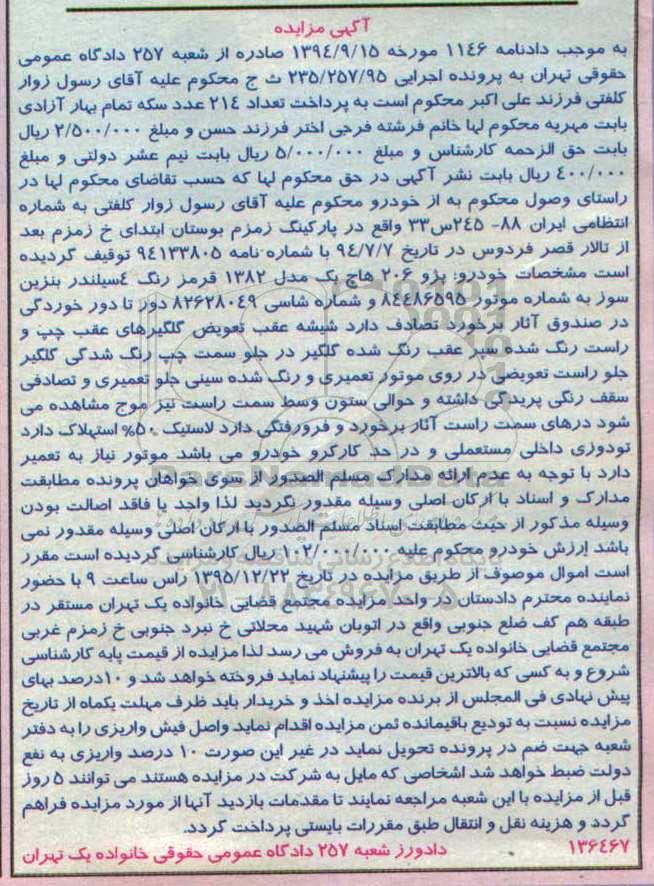 آگهی مزایده
به موجب دادنامه ۱۱۴۶ مورخه ۱۳۹۴/۹/۱۵ صادره از شعبه ۲۵۷ دادگاه عمومی
حقوقی تهران به پرونده اجرایی ۲۳۵/۲۵۷/۹۵ ث ج محکوم علیه آقای رسول زوار
کلفتی فرزند علی اکبر محکوم است به پرداخت تعداد ۲۱۴ عدد سکه تمام بهار آزادی
بابت مهریه محکوم لها خانم فرشته فرجی اختر فرزند حسن و مبلغ ۲/۵۰۰/۰۰۰ ریال
بابت حق الزحمه کارشناس و مبلغ ۵/۰۰۰/۰۰۰ ریال بابت نیم عشر دولتی و مبلغ
۴۰۰/۰۰۰ ریال بابت نشر آگهی در حق محکوم لها که حسب تقاضای محکوم لها در
راستای وصول محکوم به از خودرو محکوم علیه آقای رسول زوار کلفتی به شماره
انتظامی ایران ۸۸- ۲۴۵س۳۳ واقع در پارکینگ زمزم بوستان ابتدای خ زمزم بعد
از تالار قصر فردوس در تاریخ ۹۴/۷/۷ با شماره نامه ۹۴۱۳۳۸۰۵ توقیف گردیده
است مشخصات خودرو: پژو ۲۰۶ هاچ بک مدل ۱۳۸۲ قرمز رنگ ۴سیلندر بنزین
سوز به شماره موتور ۸۴۴۸۶۵۹۵ و شماره شاسی ۸۲۶۲۸۰۴۹ دور تا دور خوردگی
در صندوق آثار برخورد تصادف دارد شیشه عقب تعویض گلگیرهای عقب چپ و
راست رنگ شده سپر عقب رنگ شده گلگیر در جلو سمت چپ رنگ شدگی گلگیر
جلو راست تعویضی در روی موتور تعمیری و رنگ شده سینی جلو تعمیری و تصادفی
سقف رنگی پریدگی داشته و حوالی ستون وسط سمت راست نیز موج مشاهده می
شود درهای سمت راست آثار برخورد و فرورفتگی دارد لاستیک ۵۰% استهلاک دارد
تودوزی داخلی مستعملی و در حد کارکرو خودرو می باشد موتور نیاز به تعمیر
دارد با توجه به عدم ارائه مدارک مسلم الصدور از سوی خواهان پرونده مطابقت
مدارک و اسناد با ارکان اصلی وسیله مقدور نگردید لذا واجد یا فاقد اصالت بودن
وسیله مذکور از حیث مطابقت اسناد مسلم الصدور با ارکان اصلی وسیله مقدور نمی
باشد ارزش خودرو محکوم علیه ۱۰۲/۰۰۰/۰۰۰ ریال کارشناسی گردیده است مقرر
است اموال موصوف از طریق مزایده در تاریخ ۱۳۹۵/۱۲/۲۲ راس ساعت ۹ با حضور
نماینده محترم دادستان در واحد مزایده مجتمع قضایی خانواده یک تهران مستقر در
طبقه هم کف ضلع جنوبی واقع در اتوبان شهید محلاتی خ نبرد جنوبی خ زمزم غربی
مجتمع قضایی خانواده یک تهران به فروش می رسد لذا مزایده از قیمت پایه کارشناسی
شروع و به کسی که بالاترین قیمت را پیشنهاد نماید فروخته خواهد شد و ۱۰درصد بهای
پیش نهادی فی المجلس از برنده مزایده اخذ و خریدار باید ظرف مهلت یکماه از تاریخ
مزایده نسبت به تودیع باقیمانده ثمن مزایده اقدام نماید واصل فیش واریزی را به دفتر
شعبه جهت ضم در پرونده تحویل نماید در غیر این صورت ۱۰ درصد واریزی به نفع
دولت ضبط خواهد شد اشخاصی که مایل به شرکت در مزایده هستند می توانند ۵ روز
قبل از مزایده با این شعبه مراجعه نمایند تا مقدمات بازدید آنها از مورد مزایده فراهم
گردد و هزینه نقل و انتقال طبق مقررات بایستی پرداخت گردد.
۱۳۶۴۶۷ دادورز شعبه ۲۵۷ دادگاه عمومی حقوقی خانواده یک تهران
ParsNamadData